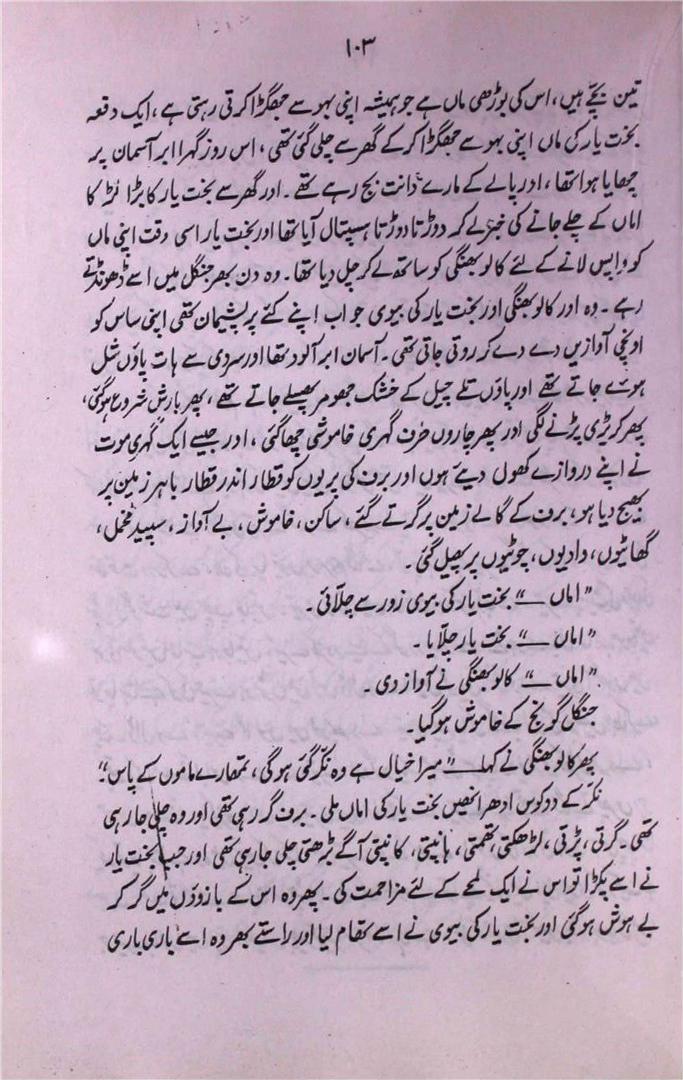 ۱۰۳
تین بچّے ہیں، اس کی بوڑھی ماں ہے جو ہمیشہ اپنی بہو سے جھگڑا کرتی رہتی ہے، ایک دفعہ
بخت یار کی ماں اپنی بہو سے جھگڑا کر کے گھر سے چلی گئی تھی، اس روز گہرا ابر آسمان پر
چھایا ہوا تھا، اور پالے کے مارے دانت بج رہے تھے۔ اور گھر سے بخت یار کا بڑا لڑکا
اماں کے چلے جانے کی خبر لے کر دوڑتا دوڑتا ہسپتال آیا تھا اور بخت یار اسی وقت اپنی ماں
کو واپس لانے کے لئے کالو بھنگی کو ساتھ لے کر چل دیا تھا۔ وہ دن بھر جنگل میں اسے ڈھونڈتے
رہے۔ وہ اور کالو بھنگی اور بخت یار کی بیوی جو اب اپنے کئے پر پشیمان تھی اپنی ساس کو
اونچی آوازیں دے دے کر روتی جاتی تھی۔ آسمان ابر آلود تھا اور سردی سے ہات پاؤں شل
ہوئے جاتے تھے اور پاؤں تلے چیل کے خشک جھومر پھسلے جاتے تھے، پھر بارش شروع ہو گئی،
پھر کریڑی پڑنے لگی اور پھر چاروں طرف گہری خاموشی چھا گئی، اور جیسے ایک گہری موت
نے اپنے دروازے کھول دیئے ہوں اور برف کی پریوں کو قطار اندر قطار باہر زمین پر
بھیج دیا ہو، برف کے گالے زمین پر گرتے گئے، ساکن، خاموش، بے آواز، سپید مخمل،
گھاٹیوں، وادیوں، چوٹیوں پر پھیل گئی۔
”اماں ——“ بخت یار کی بیوی زور سے چلّائی۔
”اماں ——“ بخت یار چلّایا۔
”اماں ——“ کالو بھنگی نے آواز دی۔
جنگل گونج کے خاموش ہو گیا۔
پھر کالو بھنگی نے کہا ——”میرا خیال ہے وہ نکّر گئی ہوگی، تمھارے ماموں کے پاس“
نکّر کے دو کوس ادھر انھیں بخت یار کی اماں ملی۔ برف گر رہی تھی اور وہ چلی جا رہی
تھی۔ گرتی، پڑتی، لڑھکتی، تھمتی، ہانپتی، کانپتی آگے بڑھتی چلی جا رہی تھی اور جب بخت یار
نے اسے پکڑا تو اس نے ایک لمحے کے لئے مزاحمت کی۔ پھر وہ اس کے بازوؤں میں گر کر
بے ہوش ہو گئی اور بخت یار کی بیوی نے اسے تھام لیا اور راستے بھر وہ اسے باری باری